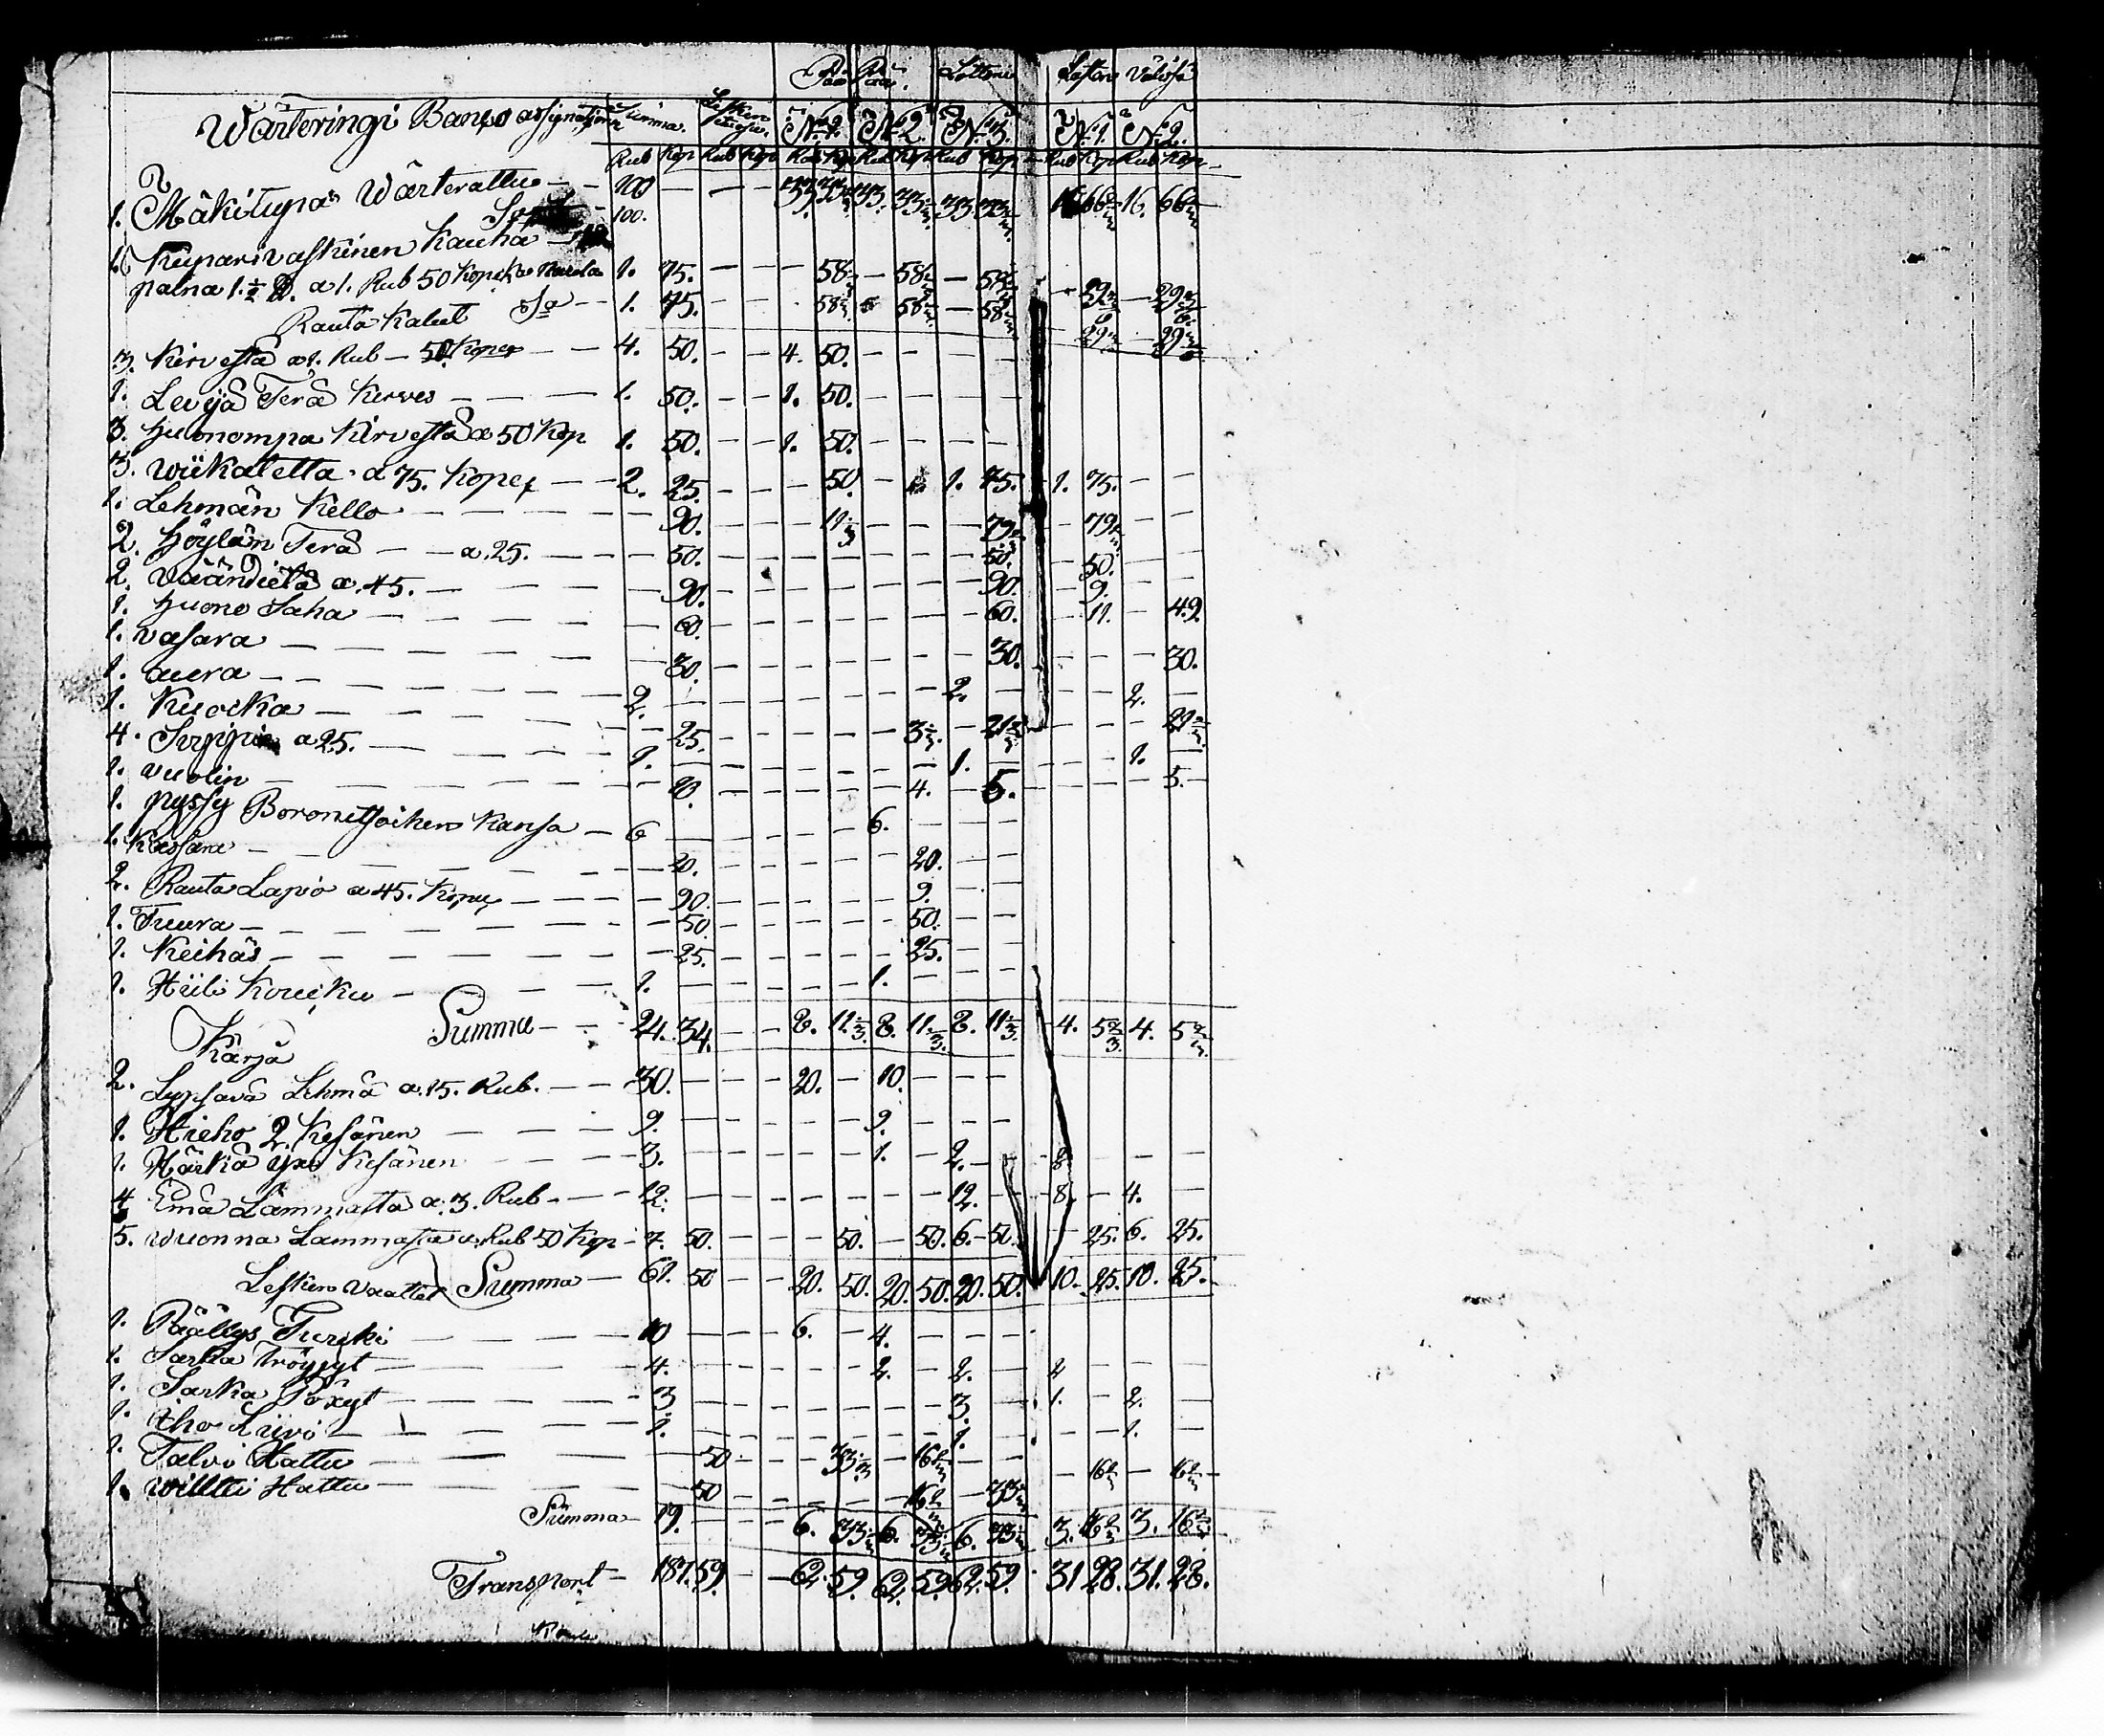 Pää Pää. Lotteni Lasten Välisä
Wärteringi Banco assignationi Summa. Lesken N:1. N:2. N:3. N:1. N:2.
Rub Kop Rub Kop Rub Kop Rub Kop Rub Kop Rub Kop Rub Kop
1. Mäkitupa Wärterattu — 100 — — — 33 33 1/3 33. 33 1/3 33 33 1/3 16 66 2/3 16. 66 2/3
100.
1. Kuparivaskinen Kauha
paina 1 1/2 a 1. Rub 50 Kopeka naula 1. 75. — — — 58 1/3 — 58 1/3 — 58 1/3 — 29 — 29
Rautakalut Sa — 1. 75. 58 1/3 58 1/3 — 58 1/3 29 — 29
3. Kirvestä a 1. Rub — 50 Kopec — 4. 50. — — 4. 50. — — — —
1. Leviä Terä Kirves — — — 1. 50. — — 1. 50. — — — —
3. Huonompa Kirvestä a 50 Kop 1. 50. — — 1. 50. — — — —
3. wiikatetta a 75. Kopec — 2. 25. — — — 50. 1. 75. 1. 75. — —
1. Lehmän Kello — — — 90. — — — 11 1/3 — — — 79 — 79 — —
2. Höylän Terä — — a 25. — — — 50. — — — — — — — 50. — 50. — —
2. väändietä a. 45. — — — 90. — — — — — — — 90. — 9. — —
1. Huono Saha — — — 60. — — — — — — — 60. — 11. — 49.
1. vasara — — — 30. — — — — — — — 30. — — — 30.
1. aura — — — 2. — — — — — — — 2. — — — 2. —
1. Kuocka — — — 25. — — — — — 3 1/3. — 21 2/3 — — — 21 2/3
4. Sirppiä a 25. — — — 1. — — — — — — — 1. — — — 1. —
1. vuolin — — — 10. — — — — — 4. — 5. — — — 5. —
1. pyssy Boronitsoihen Kansa — 6 — — — — — 6. — — —
1. Kassara — — — 20. — — — — — 20. — —
2. Rauta Lapio a 45. Kopec — — — 90. — — — — — 9. — —
1. Tuura — — — 50. — — — — — 50. — —
1. Keihäs — — — 25. — — — — — 25. — —
1. Hiili Koucku — — — 1. — — — — — 1. — — —
Summa — 24. 34. — — 8. 11 1/3. 8. 11 1/3. 8. 11 1/3. 4. 5 2/3 4. 5 2/3
Karja
2. Lypsävä Lehmä a. 15. Rub. — — 30. — — — 20. — 10. — — —
1. Hieho 2. Kesänen — — — 9. — — — — — 9. — — —
1. Härkä yxi Kesänen — — — 3. — — — — — 1. — 2. — — — — —
4 Emä Lammasta a. 3. Rub — — — 12. — — — — — — — 12. — 8. — 4. —
5. Wuonna Lammasta a. Rub 50 Kop — 7. 50. — — — 50. — 50. 6. 50. — 25. 6. 25.
Lesken vaattet Summa — 61. 50 — — 20. 50. 20. 50. 20. 50. 10. 25. 10. 25.
1. Päällys Turcki — — — 10 — — — 6. — 4. — — —
1. Sarka tröyjyt — — — 4. — — — — — 2. — 2. — 2 — — —
1. Sarka Pöxyt — — — 3 — — — — — — — 3. — 1. — 2. —
1. iho Liivi — — — 1. — — — — — — — 1. — — — 1. —
1. Talvi Hattu — — — 50 — — — 33 1/3 — 16 2/3 — — — 16 2/3 — 16 2/3
1. willtti Hattu — — — 50 — — — — — 16 2/3 — 33 1/3
Summa — 19. — — — 6. 33 1/3 6. 33 1/3 6. 33 1/3 3. 16 2/3 3. 16 2/3
Transport — 187. 59. — — 62. 59. 62. 59. 62. 59. 31 28. 31. 28.